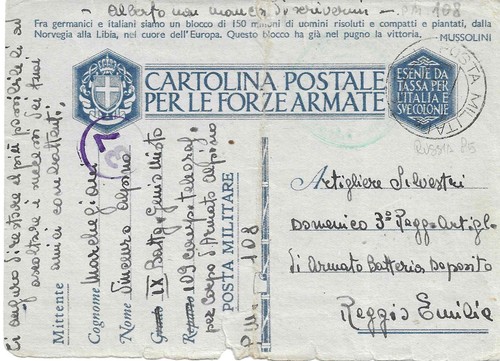 Alberto non mancar di scrivermi - PM 108
Fra germanici e italiani siamo un blocco di 150 milioni di uomini risoluti e compatti e piantati, dalla
Norvegia alla Libia, nel cuore dell'Europa. Questo blocco ha già nel pugno la vittoria. - MUSSOLINI
CARTOLINA POSTALE
PER LE FORZE ARMATE
ESENTE DA
TASSA PER
L'ITALIA E
SVE COLONIE
POSTA MILITARE
RUSSIA
Artigliere Silvestri
Domenico 3° Regg. Art. gl.
di Armata Batteria Deposito
Reggio Emilia
Ci auguro di restare il più possibile li ad
ascoltare i successi dei tuoi
amici combattenti.
Mittente
Cognome Marchegiani
Nome Vincenzo alpino
IX Battg. Genio Misto
109 Comp. telegraf.
per Corpo d'Armata alpino
POSTA MILITARE
P.M. 108
3